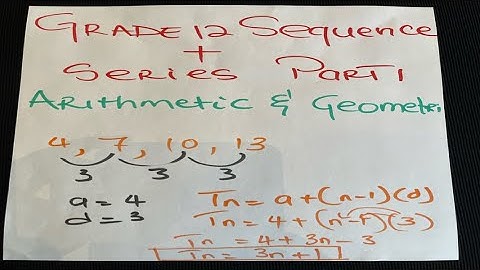 GRADE 12 Sequence
+
SERIES PART 1
ARithmetic & Geometri
4, 7, 10, 13
3 3 3
a = 4
d = 3
Tn = a + (n-1)(d)
Tn = 4 + (n-1)(3)
Tn = 4 + 3n - 3
Tn = 3n + 1